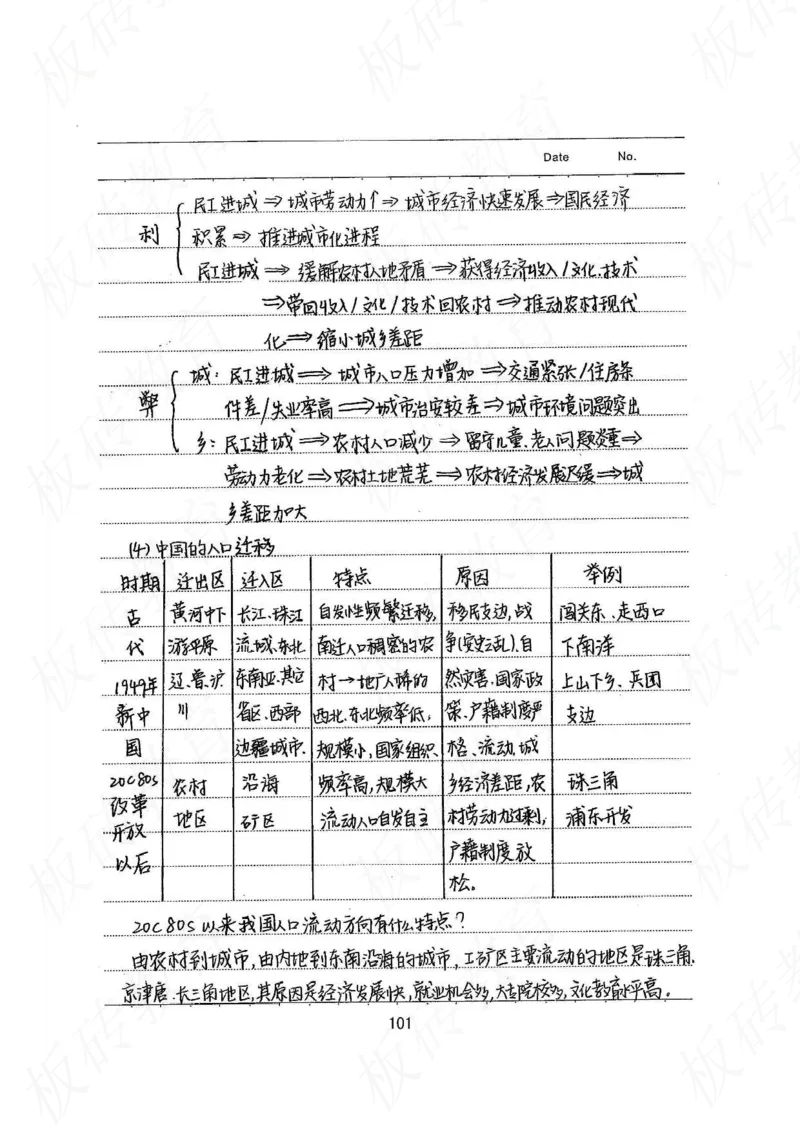 Date No.
利 民工进城⇒城市劳动力↑⇒城市经济快速发展⇒国民经济
积累⇒推进城市化进程
民工进城⇒缓解农村人地矛盾⇒获得经济收入/文化.技术
⇒带回收入/文化/技术回农村⇒推动农村现代
化⇒缩小城乡差距
弊 城:民工进城⇒城市人口压力增加⇒交通紧张/住房条
件差/失业率高⇒城市治安较差⇒城市环境问题突出
乡:民工进城⇒农村人口减少⇒留守儿童.老人问题严重⇒
劳动力老化⇒农村土地荒芜⇒农村经济发展迟缓⇒城
乡差距加大
(4)中国的人口迁移
时期 迁出区 迁入区 特点 原因 举例
古 黄河中下 长江.珠江 自发性频繁迁移, 移民支边,战 闯关东.走西口
代 游平原 流域.东北 南迁人口稠密的农 争(安史之乱).自 下南洋
1949年 辽.鲁.沪 东南亚.其它 村→地广人稀的 然灾害.国家政 上山下乡、兵团
新中 川 省区.西部 西北.东北频率低, 策、户籍制度严 支边
国 边疆城市. 规模小,国家组织 格、流动城
20C80s 农村 沿海 频率高,规模大 乡经济差距,农 珠三角
改革 地区 矿区 流动人口自发自主 村劳动力过剩, 浦东开发
开放 户籍制度放
以后 松。
20C80S以来我国人口流动方向有什么特点?
由农村到城市,由内地到东南沿海的城市,工矿区主要流动的地区是珠三角.
京津唐.长三角地区,其原因是经济发展快,就业机会多,大专院校多,文化教育水平高。
101
板砖教育